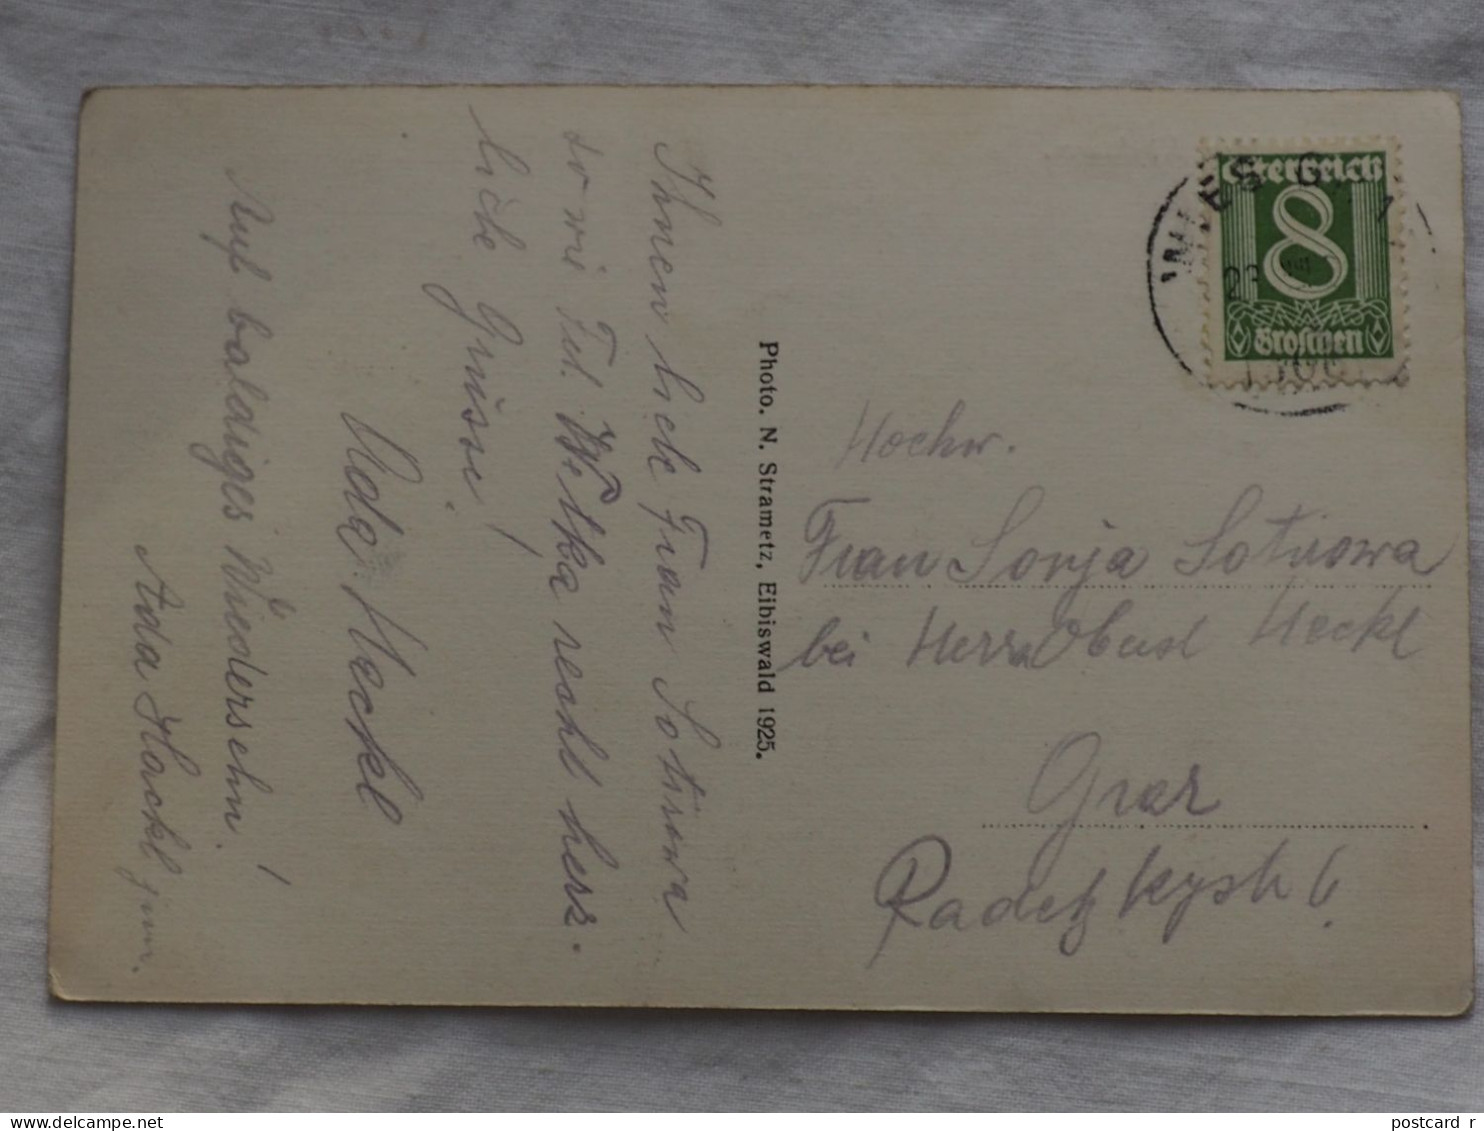 Ihnen liebe Frau Sotirowa
sowie Frl. Wetka recht herz-
liche Grüsse!
Ada Heckl
Auf baldiges Wiedersehn!
Ada Hackl jun.
Photo. N. Strametz, Eibiswald 1925.
Österreich
8
Groschen
WIES
Hochw.
Frau Sonja Sotirowa
bei Herrn Oberst Heckl
Graz
Radetzkystr 6
postcard r